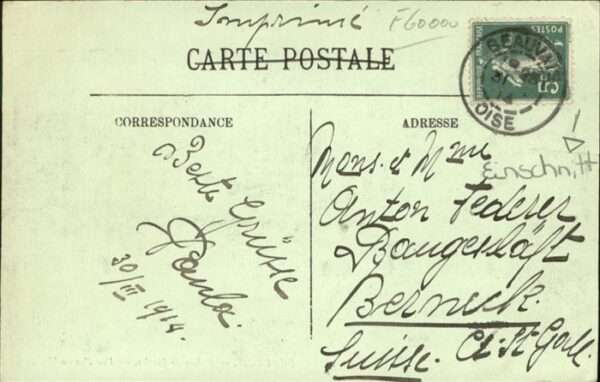 Imprimé
F60000
CARTE POSTALE
BEAUVAIS
OISE
CORRESPONDANCE
ADRESSE
Einschnitt
Beste Grüsse
Paula.
30/III 1914.
Mons. et Mme
Anton Federer
Baugeschäft
Berneck.
Suisse. Ct. St. Gall.